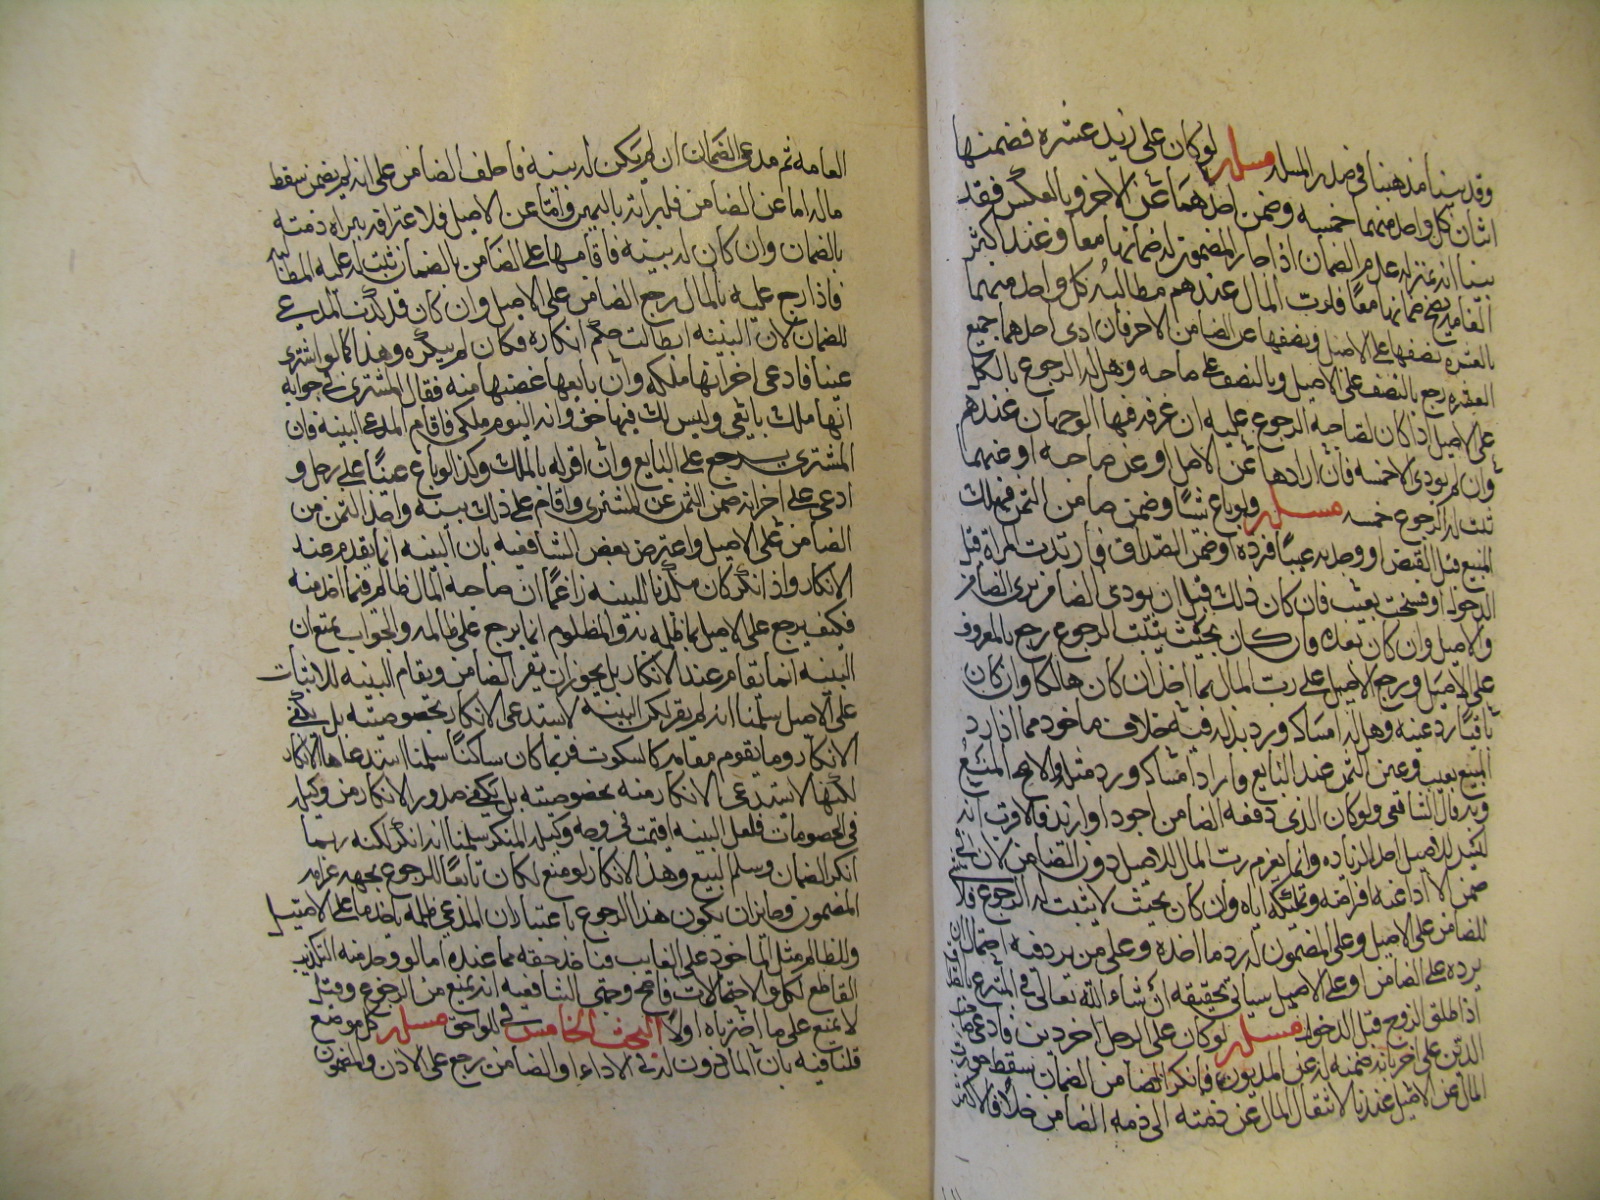 وقد بينا مذهبنا في صدر المسله مسله لو كان على زيد عشره فضمنها
اثنان كل واحد منهما خمسه وضمن احدهما عن الاخر وبالعكس فقد
بينا انه بمنزله عدم الضمان اذا جاز المضمون له ضمانهما معا وعند اكثر
العامه يصح ضمانهما معا فلرب المال عندهم مطالبه كل واحد منهما
بالعشره نصفها على الاصيل ونصفها عن الضامن الاخر فان ادى احدهما جميع
العشره رجع بالنصف على الاصيل وبالنصف على صاحبه وهل له الرجوع بالكل
على الاصيل اذا كان لصاحبه الرجوع عليه ان غرفه فيها الوجهان عندهم
وان لم يودى الا خمسه فان اداها عن الاصل او عن صاحبه او عنهما
ثبت له الرجوع خمسه مسله ولو باع شيا وضمن ضامن الثمن فهلك
المبيع قبل القبض او وجد به عيبا فرده او ضمن الصداق فارتدت المراه قبل
الدخول او فسخت بعيب فان كان ذلك قبل ان يودى الضامن برى الضامن
والاصيل وان كان بعده فان كان بحيث يثبت الرجوع رجع بالمعروف
على الاصيل ورجع الاصيل على رب المال بما اخذ ان كان هالكا وان كان
باقيا رد عينه وهل له امساكه ورد بدله فيه خلاف ماخوذ مما اذا رد
المبيع بعيب وعين الثمن عند البايع فاراد امساكه ورد مثله والاصح المنع
وبه قال الشافعي ولو كان الذى دفعه الضامن اجود او ازيد فالاقرب انه
ليس للاصيل اخذ الزياده وانما يغرم رب المال للاصيل دون الضامن لان في
ضمن الاداء عنه اقراضه وتمليكه اياه وان كان بحيث لا يثبت له الرجوع فلا
للضامن على الاصيل وعلى المضمون له رد ما اخذه وعلى من يرد فيه احتمال ان
يرده على الضامن او على الاصيل سياتي تحقيقه ان شاء الله تعالى في المتبرع بالصداق
اذا طلق الزوج قبل الدخول مسله لو كان على الرجل اخر دين فادعى
الدين على اخر بانه ضمنه له عن المديون فانكر الضامن الضمان سقط
المال عن الاصيل عندنا لانتقال المال عن ذمته الى ذمه الضامن خلافا لاكثر
العامه ثم مدعى الضمان ان لم يكن له بينه فاحلف الضامن على انه لم يضمن سقط
ماله اما عن الضامن فلبراته باليمين واما عن الاصيل فلاعترافه ببراه ذمته
بالضمان وان كان له بينه فاقامها على الضامن بالضمان ثبت له عليه المطالبه
فاذا رجع عليه بالمال رجع الضامن على الاصيل وان كان قد كذب المدعي
للضمان لان البينه ابطلت حكم انكاره فكان لم ينكره وهذا كما لو اشترى
عينا فادعى اخر انها ملكه وان بايعها غصبها منه فقال المشترى في جوابه
انها ملك بايعي وليس لك فيها حق وانه اليوم ملكى فاقام المدعي البينه فان
المشترى يرجع على البايع وان اقر له بالملك وكذا لو باع عينا على رجل و
ادعى على اخر انه ضمن الثمن عن المشترى واقام على ذلك بينه واخذ الثمن من
الضامن رجع على الاصيل واعترض بعض الشافعيه بان البينه انما تقدم عند
الانكار واذا انكر كان مكذبا للبينه زاعما ان صاحبه المال ظالم فيما اخذ منه
فكيف يرجع على الاصيل بما ظلم به والمظلوم انما يرجع على ظالمه والجواب بمنع ان
البينه انما تقام عند الانكار بل يجوز ان يقر الضامن ويقام البينه للاثبات
على الاصيل سلمنا انه لم يقر لكن البينه لا تستدعى الانكار بخصوصيته بل يكفي
الانكار وما يقوم مقامه كالسكوت فربما كان ساكتا سلمنا استدعاها الانكار
لكنها لا تستدعى الانكار منه بخصوصيته بل يكفي صدور الانكار من وكيله
في الخصومات فلعل البينه اقيمت في وجه وكيله المنكر سلمنا انه انكر لكنه ربما
انكر الضمان وسلم البيع وهذا الانكار لو منع لكان مانعا للرجوع بجهه غرامه
المضمون وجايز ان يكون هذا الرجوع باعتبار ان المدعي ظلمه باخذ ما على الاصيل
وللظالم مثل الماخوذ على الغايب فياخذ حقه مما عنده اما لو وجد منه التكذيب
القاطع لكل الاحتمالات فاصح وجهى الشافعيه انه يمنع من الرجوع وقيل
لا يمنع على ما اخترناه اولا البحث الخامس في اللواحق مسله كل موضع
قلنا فيه بان الماذون له في الاداء او الضامن يرجع على الاذن والمضمون